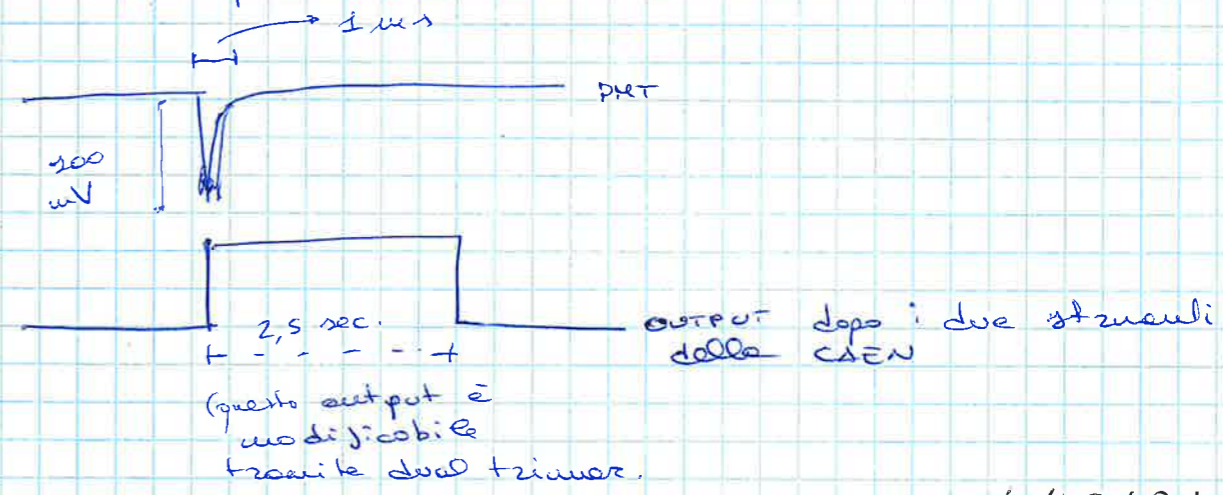 1 ms
PMT
100
mV
2,5 sec.
OUTPUT dopo i due strumenti
della CAEN
(questo output è
modificabile
tramite dual trimmer.